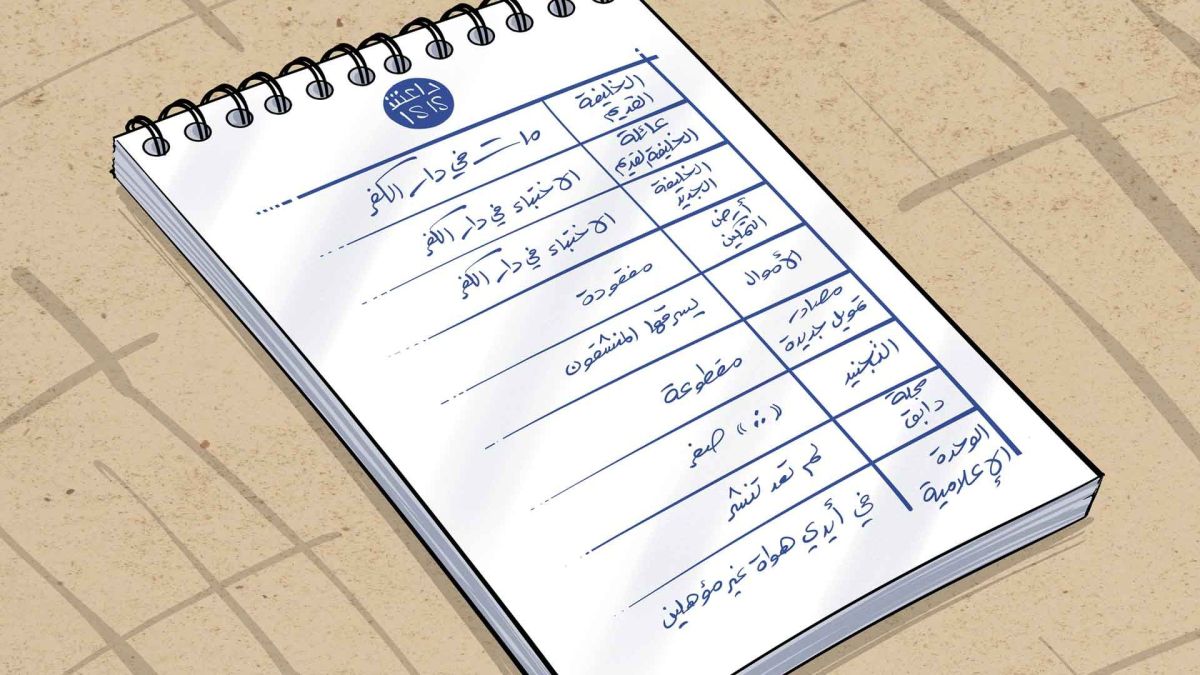 داعش
ISIS
الخليفة القديم
مات في دار الكفر
عائلة الخليفة لقديم
الاختباء في دار الكفر
الخليفة الجديد
الاختباء في دار الكفر
أرض التمكين
مفقودة
الأموال
يسرقها المنشقون
مصادر تمويل جديدة
مقطوعة
التجنيد
«٠٠» صفر
مجلة دابق
لم تعد تنشر
الوحدة الإعلامية
في أيدي هواة غير مؤهلين